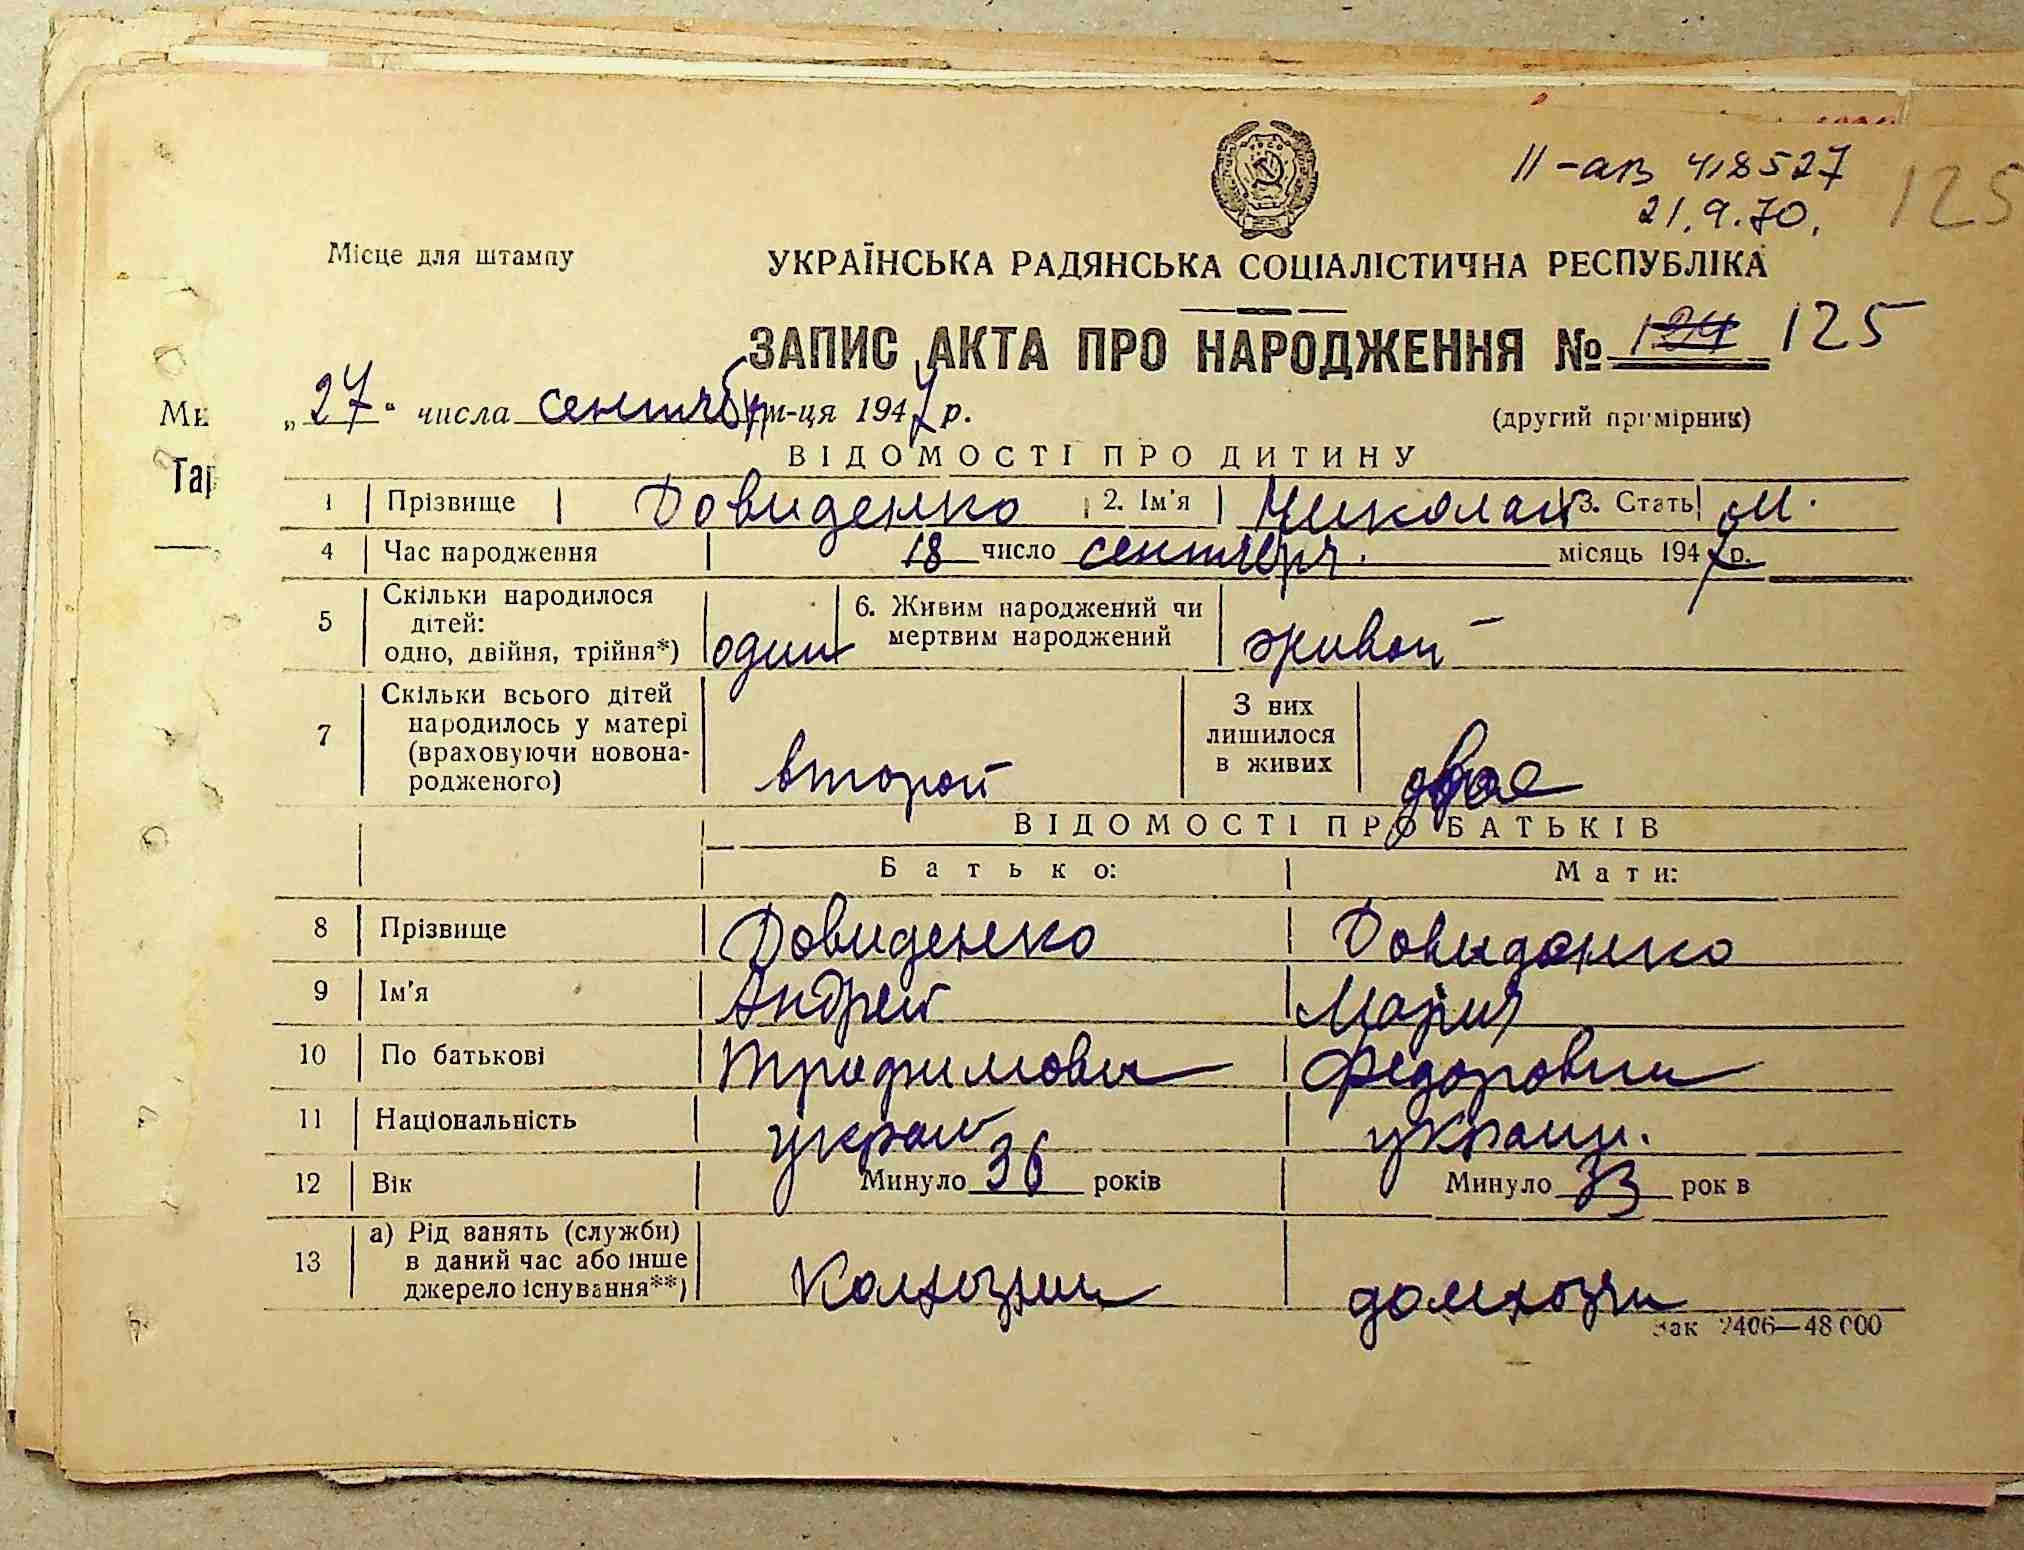 II-ап 418527
125
21.9.70.
Місце для штампу
УКРАЇНСЬКА РАДЯНСЬКА СОЦІАЛІСТИЧНА РЕСПУБЛІКА
ЗАПИС АКТА ПРО НАРОДЖЕННЯ № 124 125
„27“ числа сентября м-ця 1947 р.
(другий примірник)
ВІДОМОСТІ ПРО ДИТИНУ
1 Прізвище Довиденко 2. Ім'я Николай 3. Стать М.
4 Час народження 18 число сентября. місяць 1947 р.
5 Скільки народилося дітей: одно, двійня, трійня*) один 6. Живим народжений чи мертвим народжений живой
7 Скільки всього дітей народилось у матері (враховуючи новонародженого) второй З них лишилося в живих двое
ВІДОМОСТІ ПРО БАТЬКІВ
Батько: Мати:
8 Прізвище Довиденко Довиденко
9 Ім'я Андрей Мария
10 По батькові Трафимови Федоровна
11 Національність украин украин.
12 Вік Минуло 36 років Минуло 33 рок в
13 а) Рід занять (служби) в даний час або інше джерело існування**) Колхозни домхозяи
Зак 2406—48 000